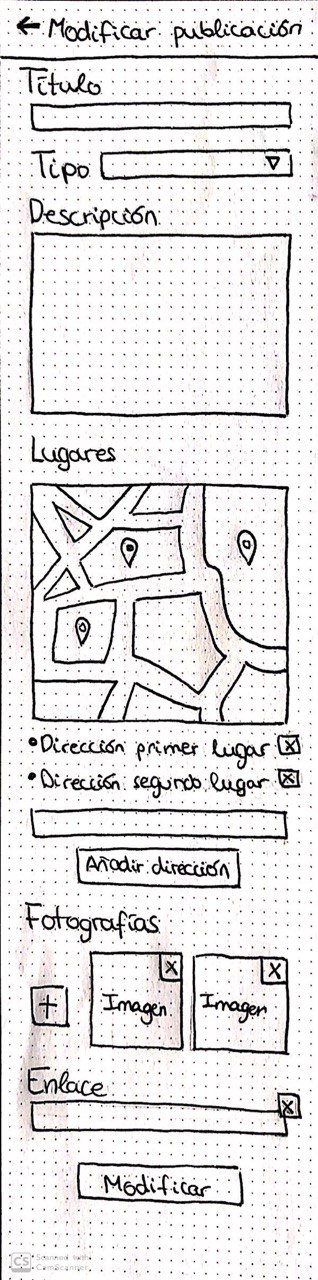 ← Modificar publicación
Título
Tipo
Descripción
Lugares
•Dirección primer lugar x
•Dirección segundo lugar x
Añadir dirección
Fotografías
x x
+ Imagen Imagen
Enlace
x
Modificar
CS Scanned with
CamScanner